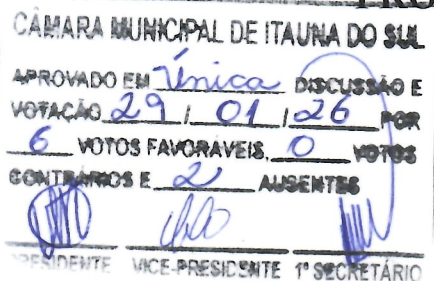 CÂMARA MUNICIPAL DE ITAUNA DO SUL
APROVADO EM Única DISCUSSÃO E
VOTAÇÃO 29 / 01 / 26 POR
6 VOTOS FAVORÁVEIS, 0 VOTOS
CONTRÁRIOS E 2 AUSENTES
PRESIDENTE VICE-PRESIDENTE 1º SECRETÁRIO